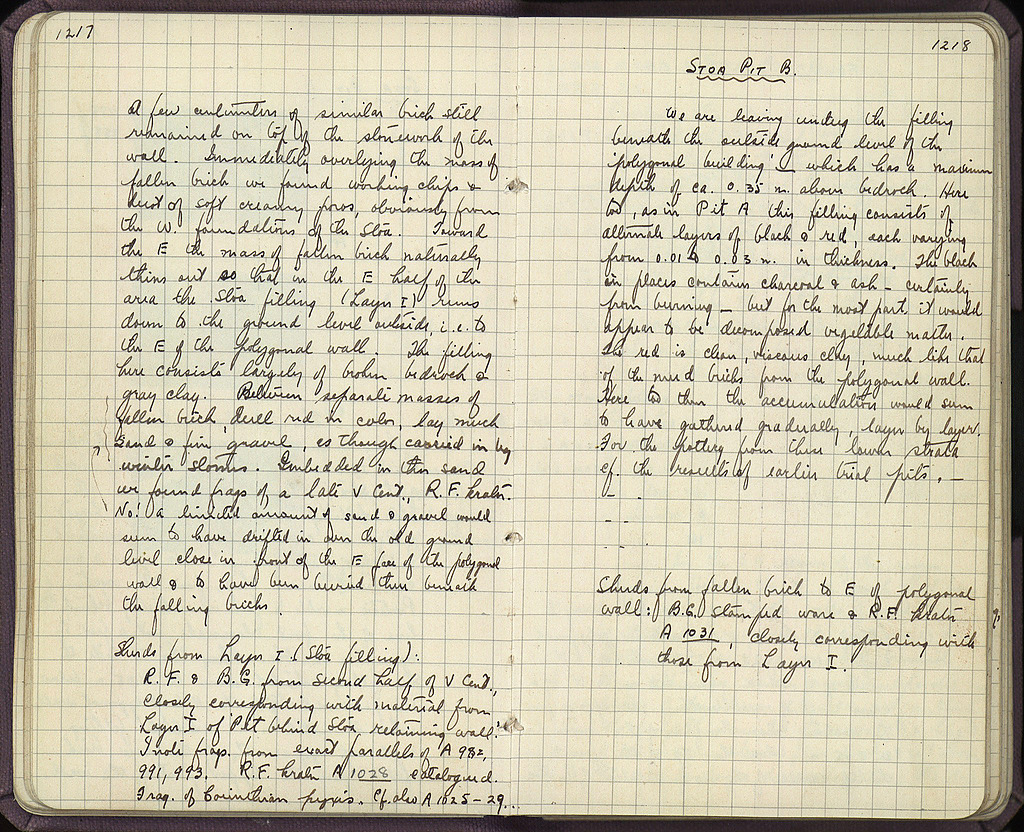 1217
A few centimeters of similar brick still
remained on top of the stonework of the
wall. Immediately overlying the mass of
fallen brick we found working chips &
dust of soft creamy poros, obviously from
the W. foundations of the Stoa. Toward
the E the mass of fallen brick naturally
thins out so that in the E half of the
area the Stoa filling (Layer I) runs
down to the ground level outside, i.e. to
the E of the polygonal wall. The filling
here consists largely of broken bedrock &
gray clay. Between separate masses of
fallen brick, dull red in color, lay much
sand & fine gravel, as though carried in by
winter storms. Imbedded in this sand
we found frags of a late V Cent., R.F. krater.
No! a limited amount of sand & gravel would
seem to have drifted in over the old ground
level close in front of the E face of the polygonal
wall & to have been buried then beneath
the falling bricks.
Sherds from Layer I (Stoa filling):
R.F. & B.G. from second half of V Cent.,
closely corresponding with material from
Layer I of Pit behind Stoa retaining wall.
Note frags. from exact parallels of A 982,
991, 993. R.F. krater A 1028 catalogued.
Frag. of Corinthian pyxis. Cf. also A 1025-29.
1218
STOA PIT B.
We are leaving undug the filling
beneath the outside ground level of the
'polygonal building' – which has a maximum
depth of ca. 0.35 m. above bedrock. Here
too, as in Pit A this filling consists of
alternate layers of black & red, each varying
from 0.01 to 0.03 m. in thickness. The black
in places contains charcoal & ash – certainly
from burning – but for the most part, it would
appear to be decomposed vegetable matter.
The red is clean, viscous clay, much like that
of the mud bricks from the polygonal wall.
Here too then the accumulation would seem
to have gathered gradually, layer by layer.
For the pottery from these lower strata
cf. the results of earlier trial pits. –
Sherds from fallen brick to E of polygonal
wall: B.G. stamped ware & R.F. krater
A 1031, closely corresponding with
those from Layer I.